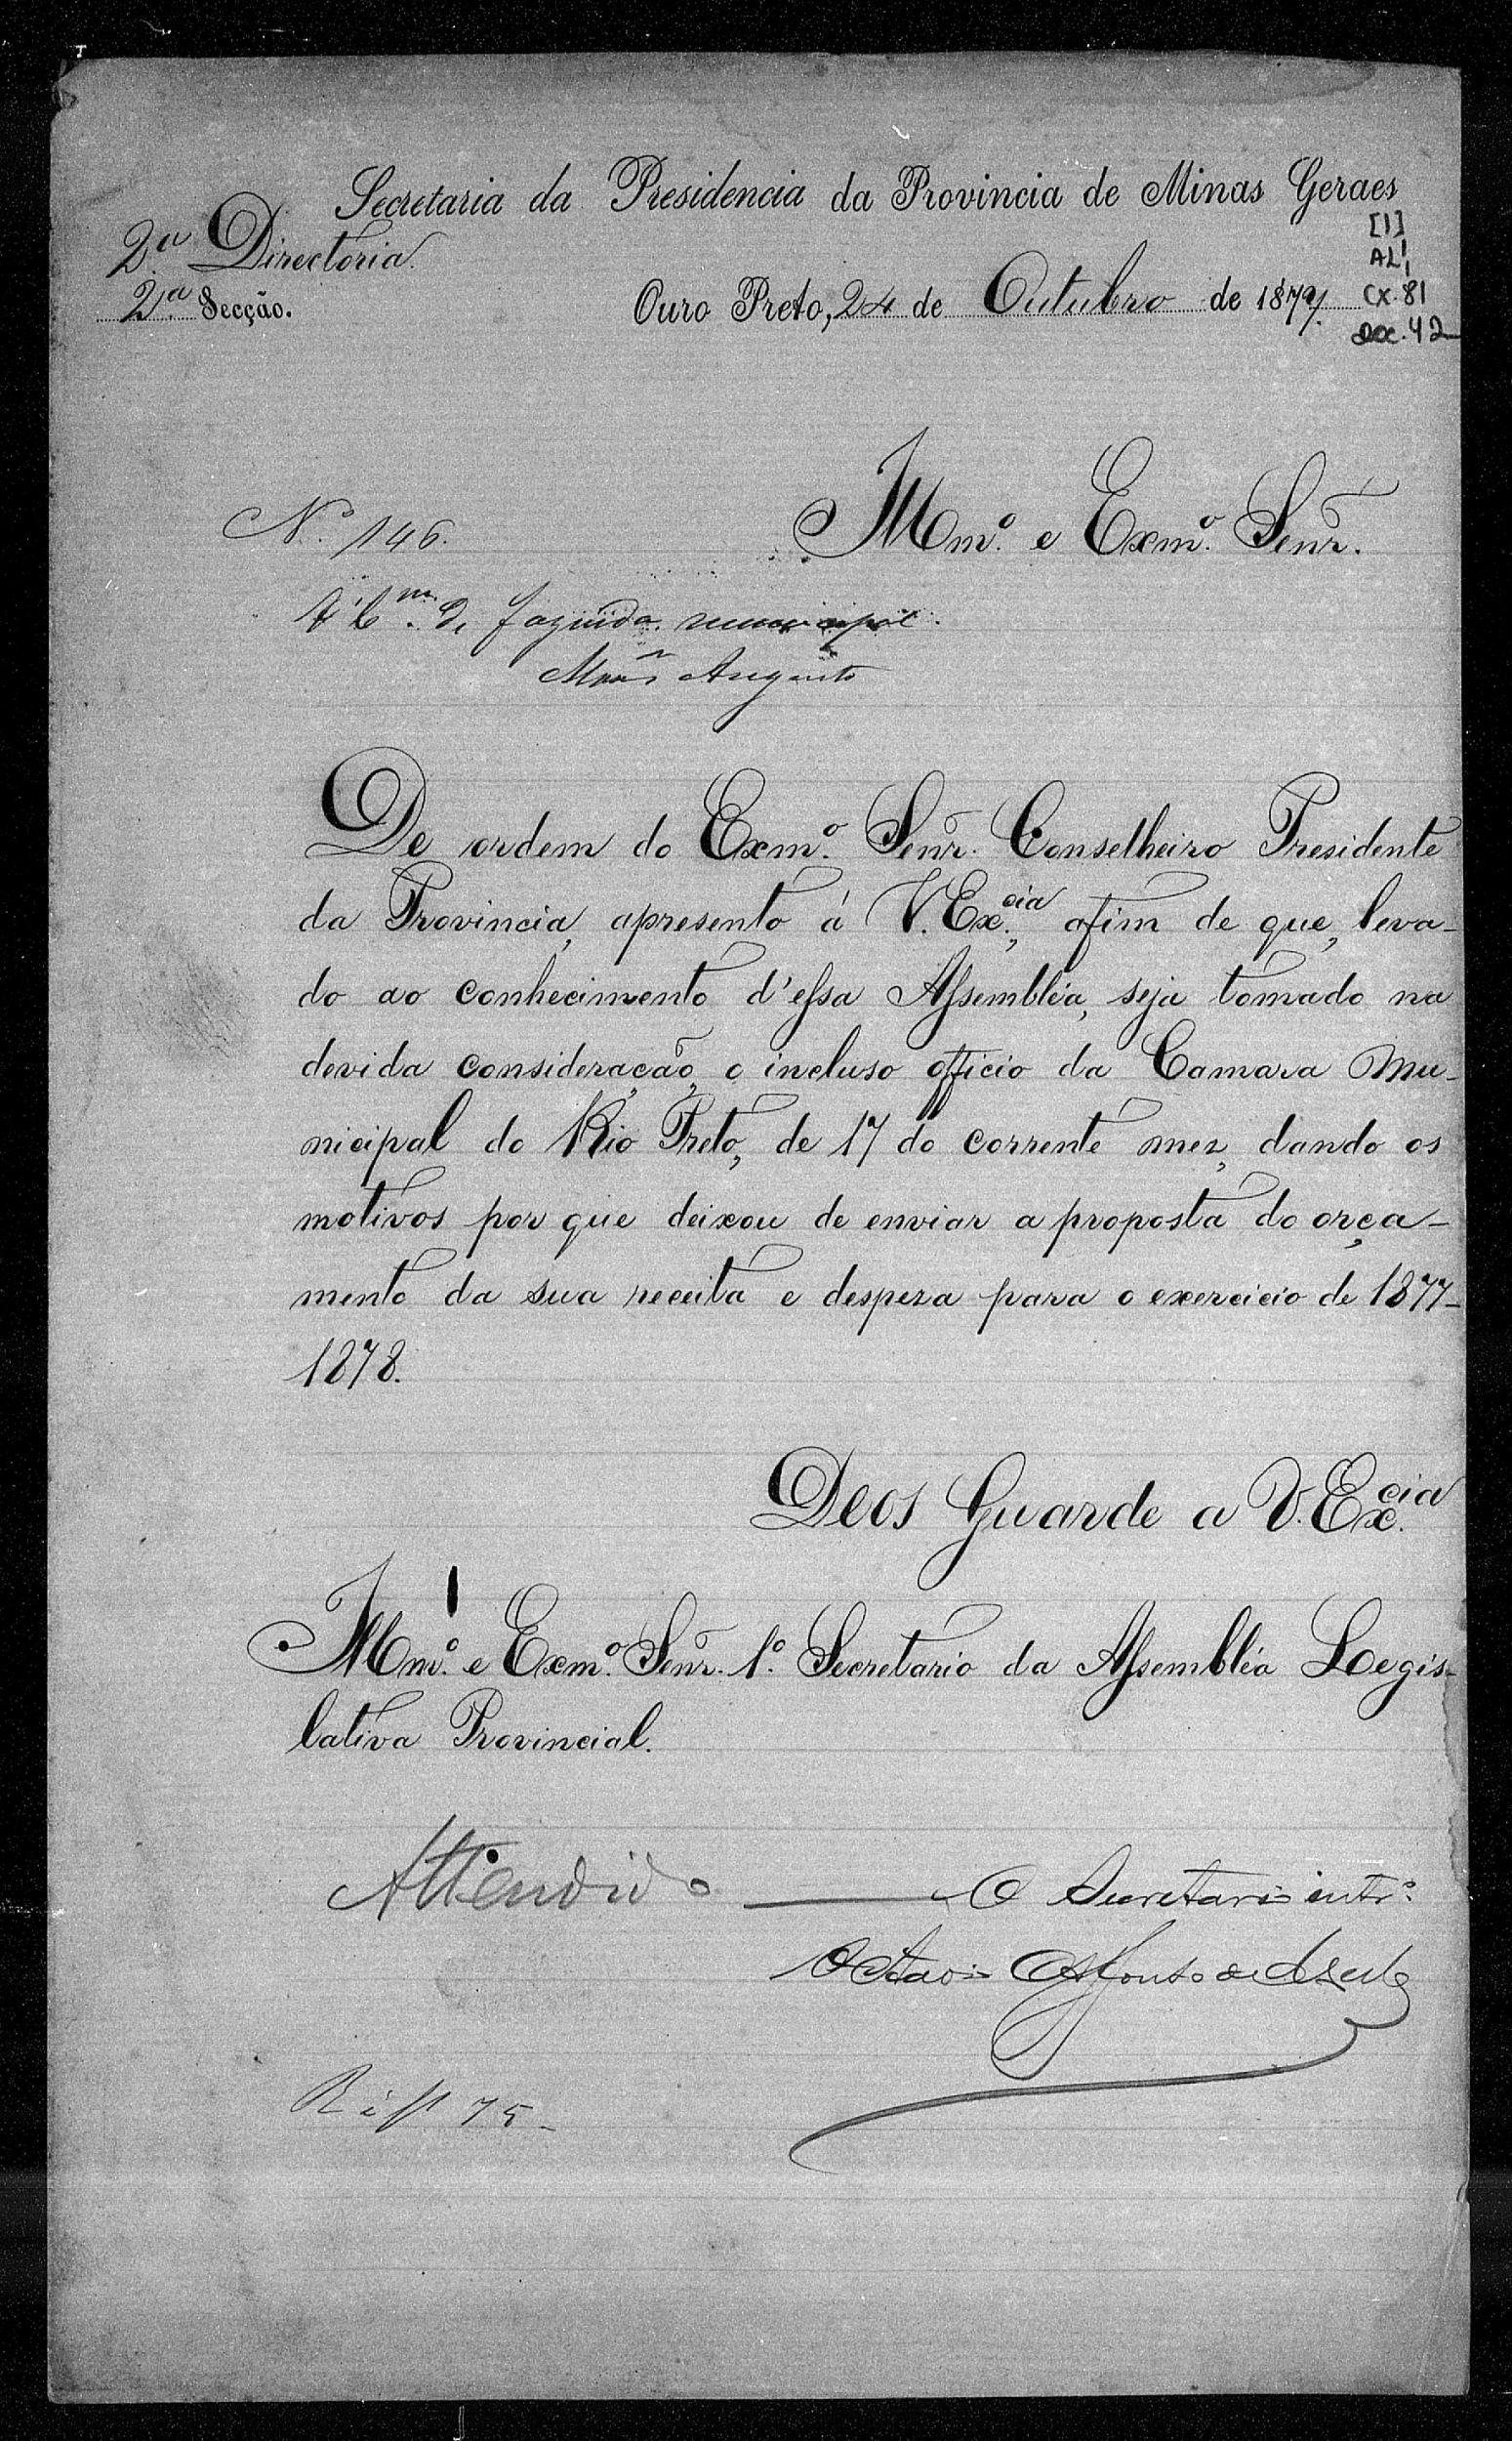 Secretaria da Presidencia da Provincia de Minas Geraes
2ª Directoria.
2ª Secção.
Ouro Preto, 24 de Outubro de 1877.
[1]
AL1,
CX. 81
DOC. 42
Nº 146.
Illmº. e Exmº. Senr.
Á Cm. de fazenda municipal.
Augusto
De ordem do Exmº. Senr. Conselheiro Presidente
da Provincia, apresento á V. Excia., afim de que, leva-
do ao conhecimento d'essa Assembléa, seja tomado na
devida consideração, o incluso officio da Camara Mu-
nicipal do Rio Preto, de 17 do corrente mez, dando os
motivos por que deixou de enviar a proposta do orça-
mento da sua receita e despeza para o exercicio de 1877-
1878.
Deos Guarde a V. Excia.
Illmº. e Exmº. Senr. 1º. Secretario da Assembléa Legis-
lativa Provincial.
Attendido
O Secretario intrº.
Affonso de
75